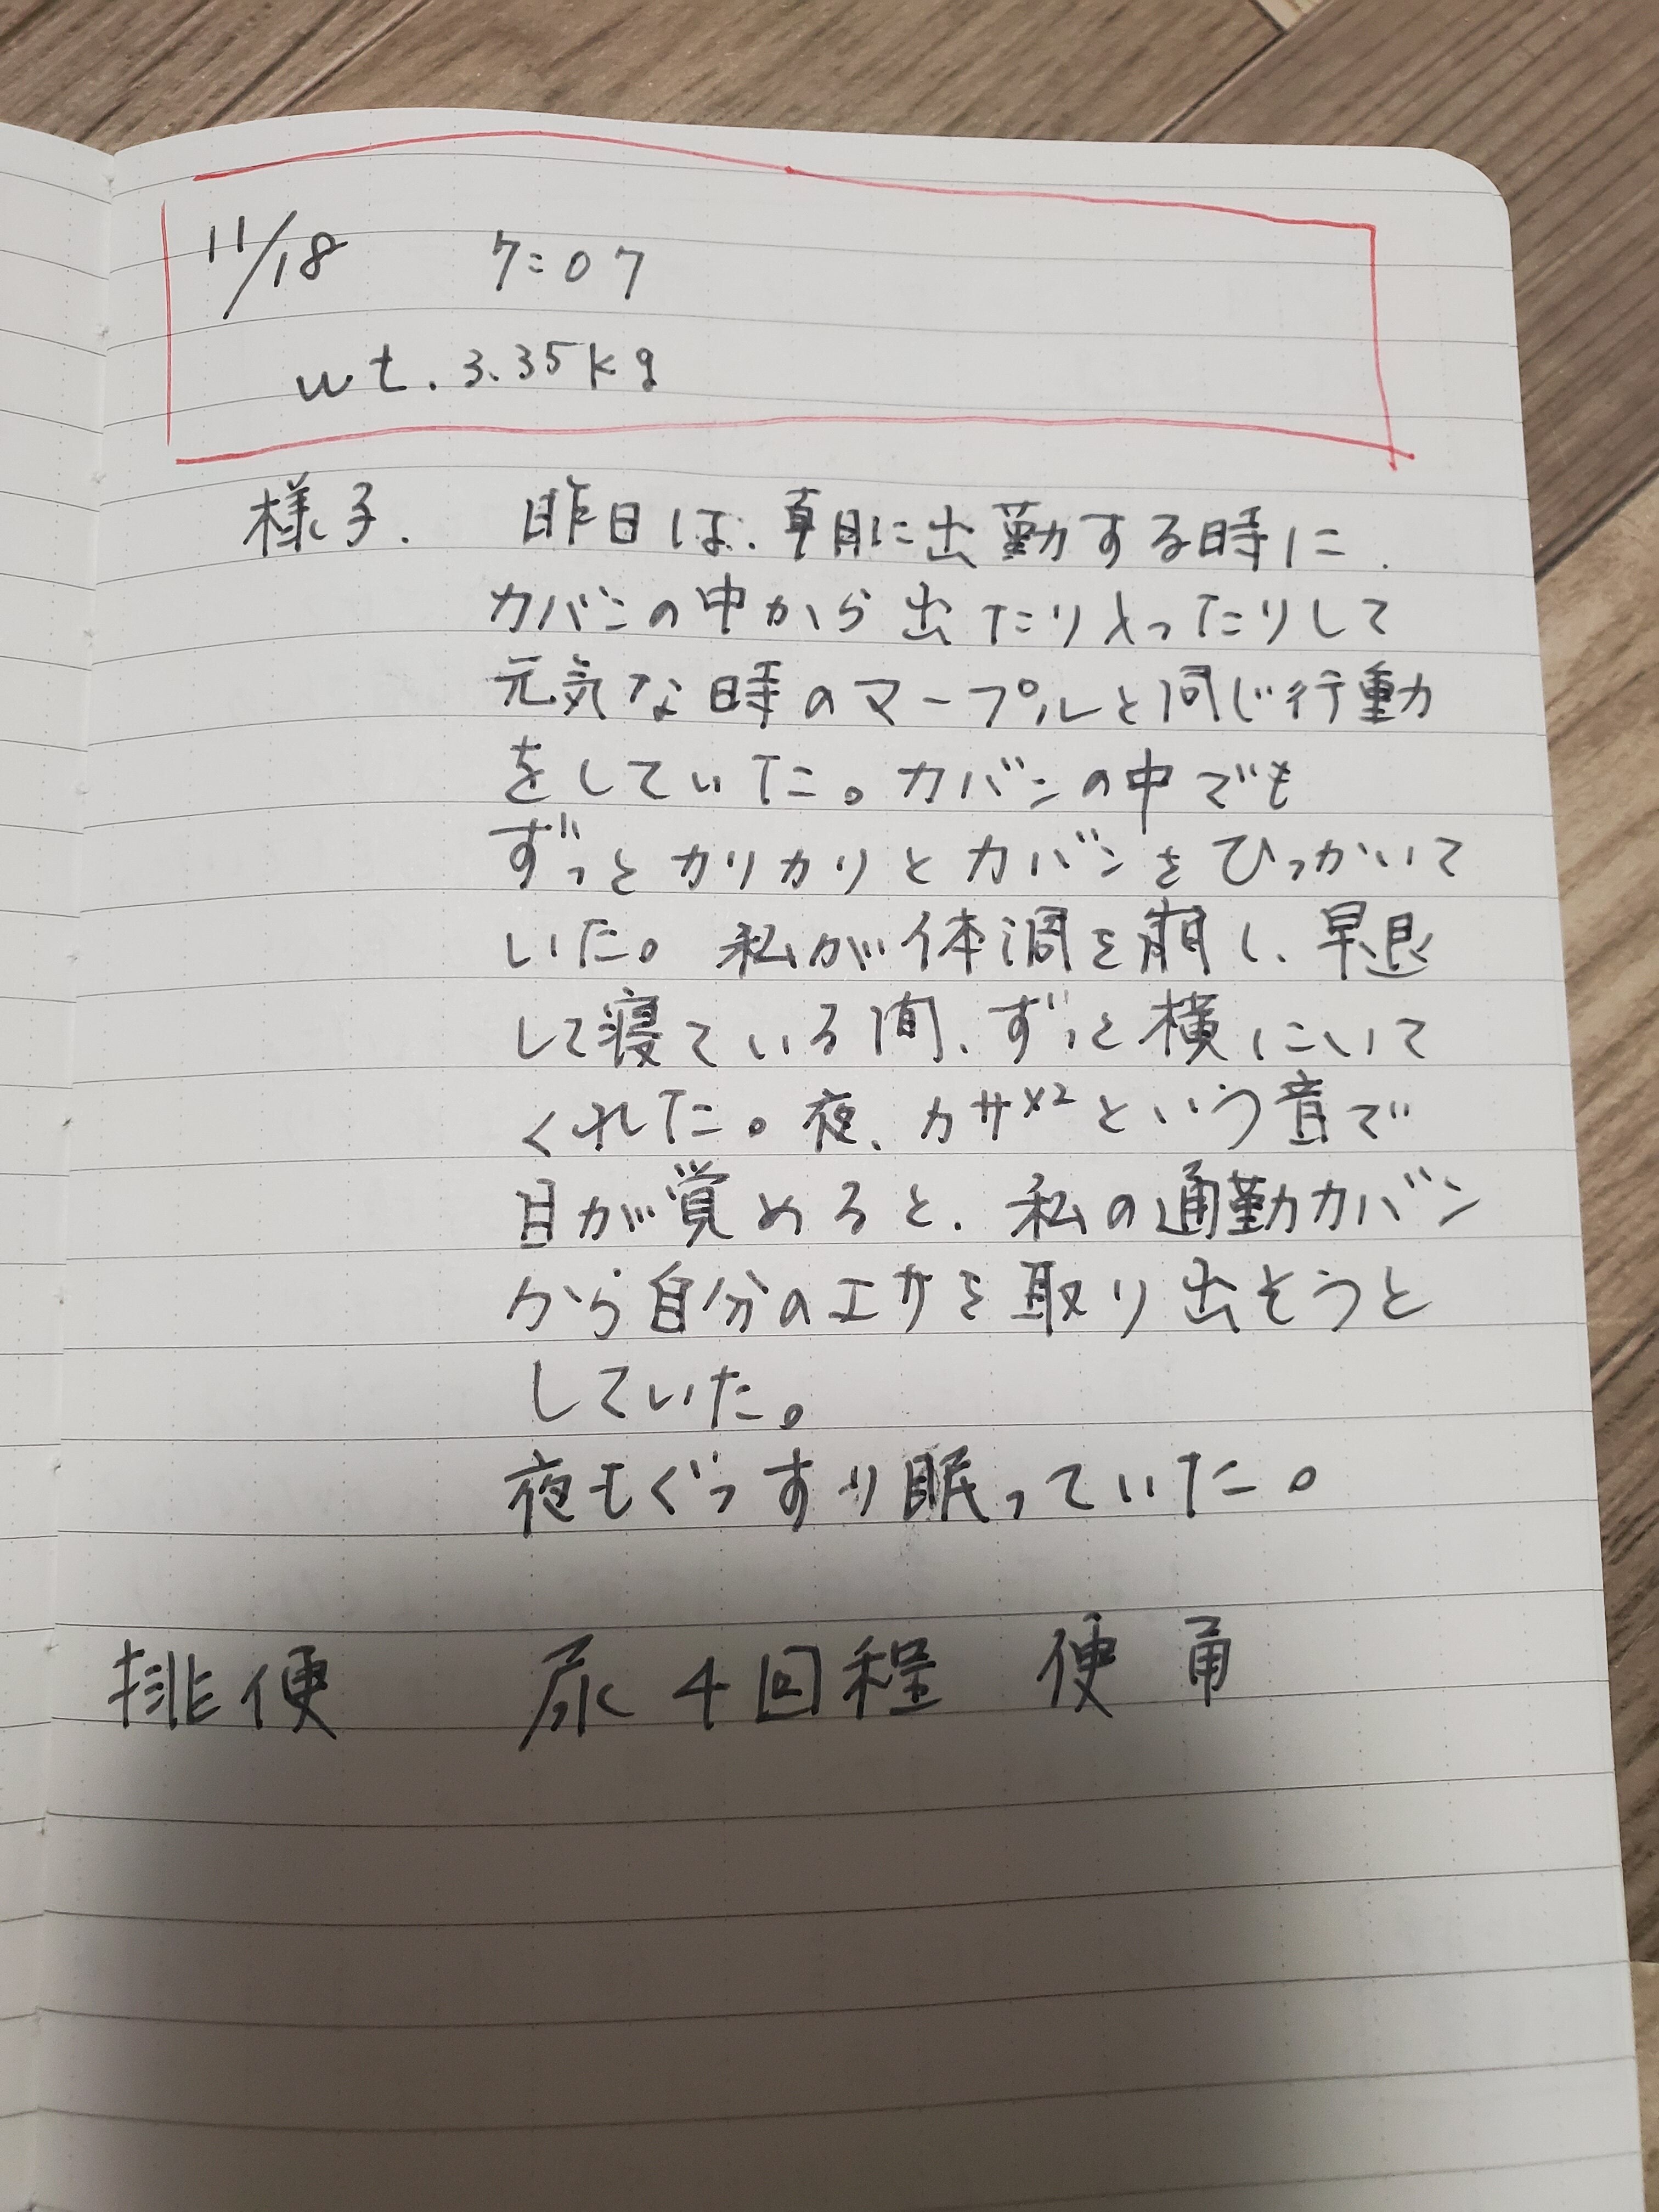 11/18 7:07
wt. 3.35kg
様子. 昨日は、朝に出勤する時に、
カバンの中から出たり入ったりして
元気な時のマープルと同じ行動
をしていた。カバンの中でも
ずっとカリカリとカバンをひっかいて
いた。私が体調を崩し、早退
して寝ている間、ずっと横にいて
くれた。夜、カサ×2という音で
目が覚めると、私の通勤カバン
から自分のエサを取り出そうと
していた。
夜もぐっすり眠っていた。
排便 尿4回程 便